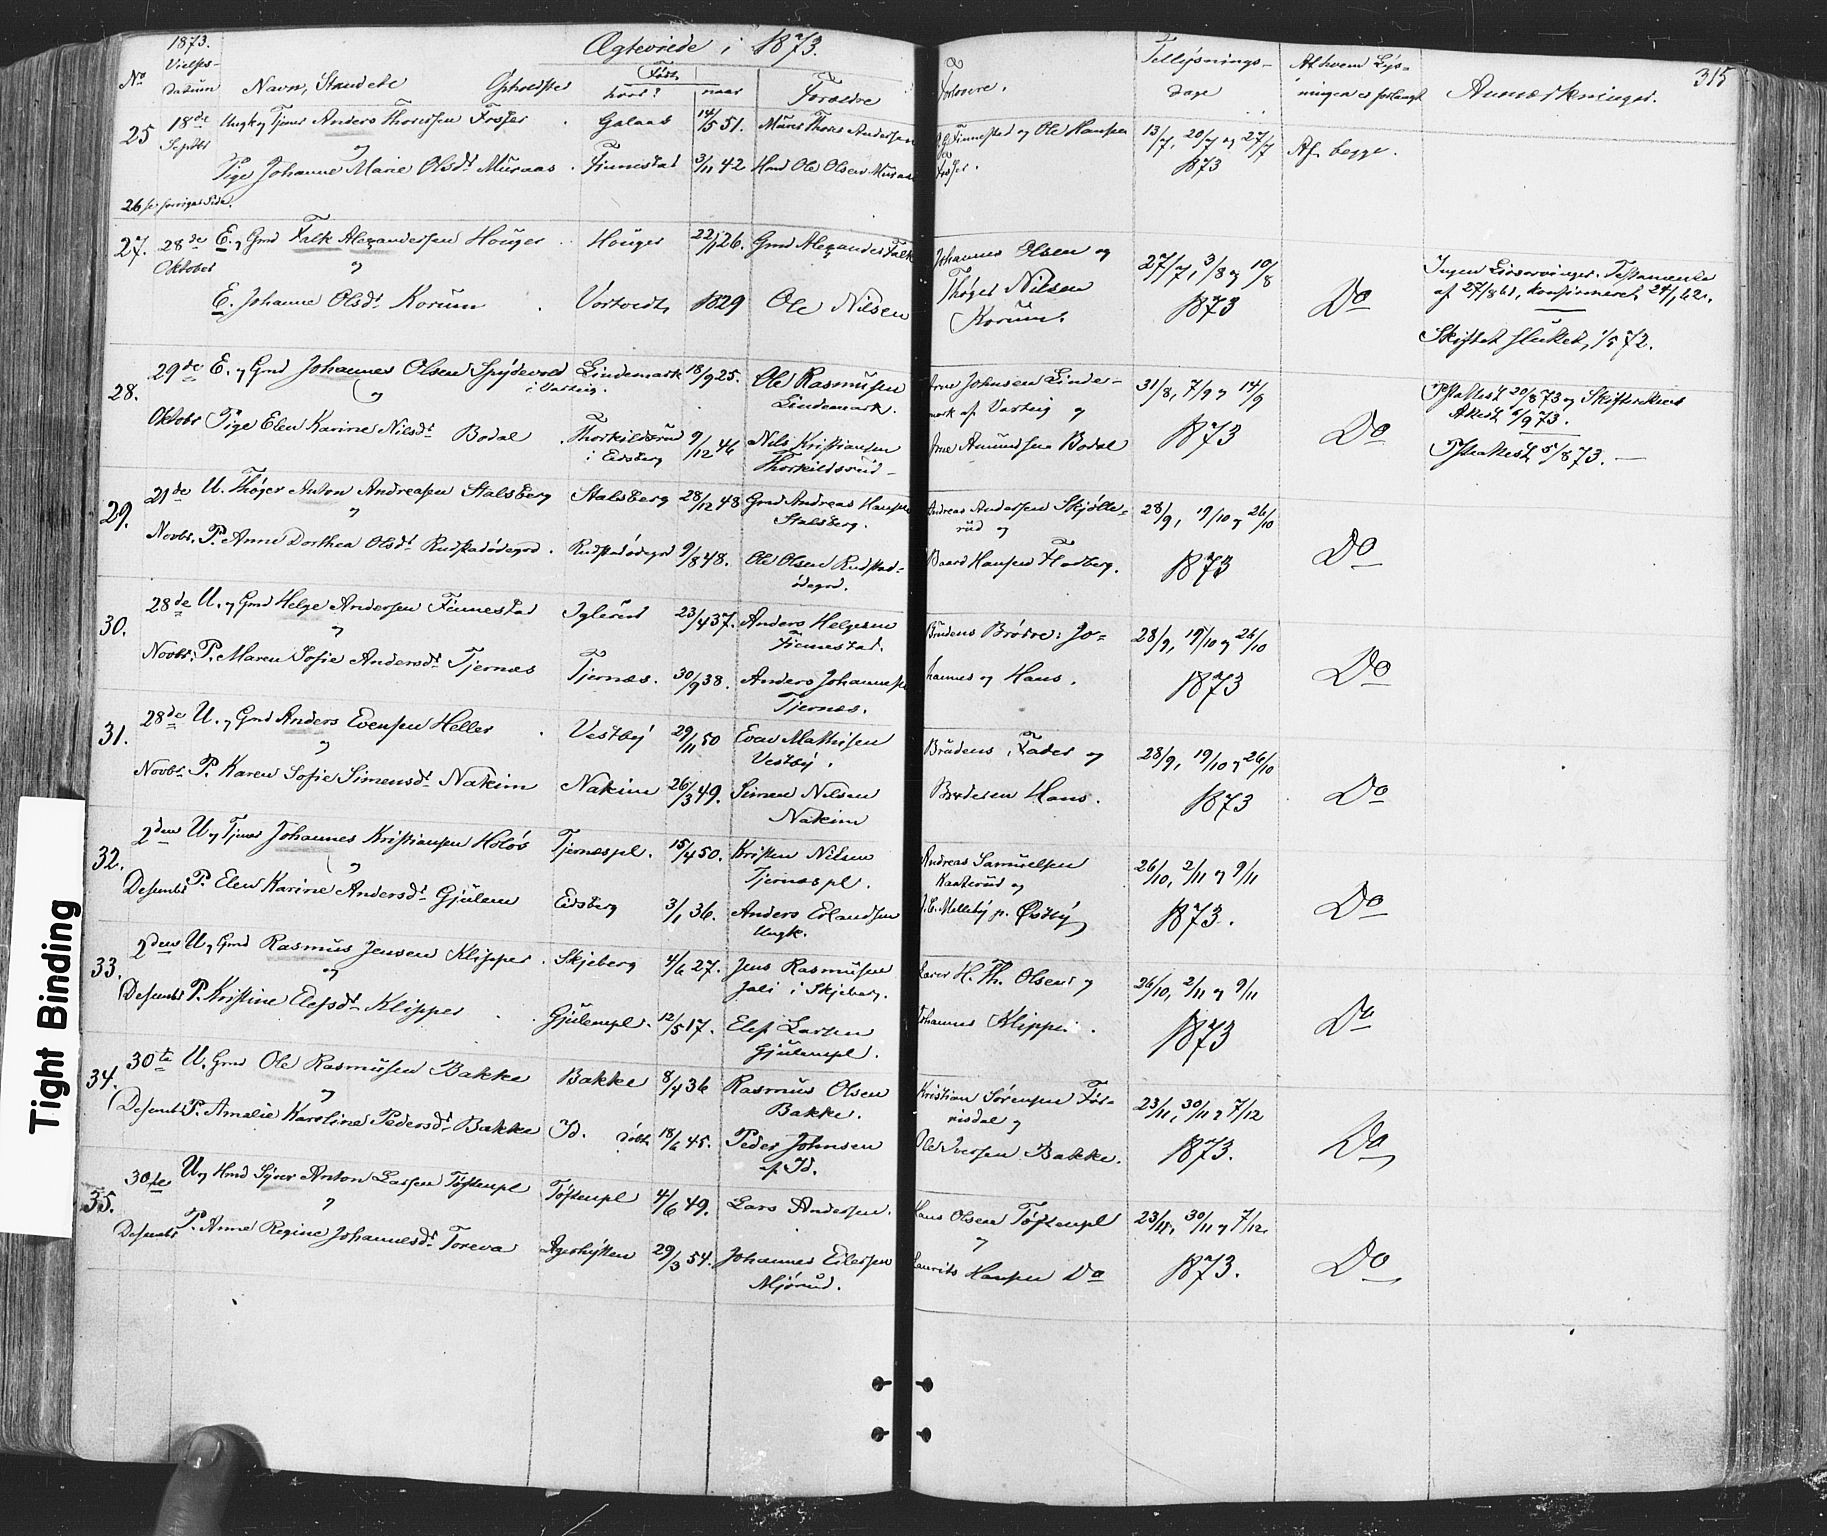 Ægteviede i 1873.
315
1873.
No
Vielses-
datum
Navn, Stand etc
Opholdsted
Født
hvor?
naar
Forældre
Forlovere.
Tillysnings-
dage
Af hvem Lys-
ningen er forlangt
Anmærkninger.
25
18de Septbr
Ungk og Tjener Anders Thoresen Fosser
Galaas
14/5 51.
Murer Thore Andersen
Finnestad og Ole Hansen
Fosser.
13/7, 20/7 og 27/7
1873
Af begge.
og
Pige Johanne Marie Olsdt Muraas
Finnestad
3/11 42
Hmd Ole Olsen Muraas
26 se forrige Side.
27.
28de Oktober
E. og Gmd Falk Alexandersen Houger
Houger
22/1 26.
Gmd Alexander Falk
Johannes Olsen og
Thøger Nilsen
Korum.
27/7, 3/8 og 10/8
1873
Do
Ingen Livsarvinger. Testamente
af 27/8 61, konfirmeret 24/1 62.
Skiftet sluttet 1/5 72.
og
E. Johanne Olsdt Korum
1829
Ole Nilsen
28.
29de Oktobr
E. og Gmd Johannes Olsen Spydevold
i Varteig.
Lindemark
18/9 25.
Ole Rasmusen
Lindemark.
Arne Johnsen Linde-
mark af Varteig og
Arne Amundsen Bodal
31/8, 7/9 og 14/9
1873
Do
Pstattest 20/8 73 og Skifterettens
Attest 5/9 73.
Pstattest 5/8 73.
og
Pige Elen Karine Nilsdt Bodal
Thorkildsrud
i Eidsberg
9/12 46
Nils Kristiansen
Thorkildsrud
29.
21de Novbr.
U. Thøger Anton Andreasen Stalsberg
Stalsberg
28/12 48
Gmd Andreas Hansen
Stalsberg.
Andreas Andersen Skjølle-
rud og
Baard Hansen Flatberg.
28/9, 19/10 og 26/10
1873
Do
og
P. Anne Dorthea Olsdt Rudstadødegrd.
Rudstadødegrd
9/8 48.
Ole Olsen Rudstad-
ødegrd.
30.
28de Novbr.
U. og Gmd Helge Andersen Finnestad
Iglerud
23/4 37.
Anders Helgesen
Finnestad.
Brudens Brødre: Jo-
hannes og Hans.
28/9, 19/10 og 26/10
1873
Do
og
P. Maren Sofie Andersdt Tjernæs
Tjernæs.
30/9 38.
Anders Johannesen
Tjernæs.
31.
28de Novbr.
U. og Gmd Anders Evensen Heller
Vestby
29/11 50
Even Mathisen
Vestby.
Brudens Fader og
Broderen Hans.
28/9, 19/10 og 26/10
1873
Do
og
P. Karen Sofie Simensdt Nakim
Nakim
26/3 49.
Simen Nilsen
Nakim
32.
2den Desember
U. og Tjener Johannes Kristiansen Holøs
Tjernæspl.
15/4 50.
Kristen Nilsen
Tjernæspl.
Andreas Samuelsen
Kaaterud og
Melleby p. Østby
26/10, 2/11 og 9/11
1873.
Do
og
P. Elen Karine Andersdt Gjulem
Eidsberg
3/1 36.
Anders Erlandsen
Ungk.
33.
2den Desembr
U. og Gmd Rasmus Jensen Klipper
Skjeberg
4/6 27.
Jens Rasmusen
i Skjeberg.
H. Th. Olsen og
Johannes Klipper.
26/10, 2/11 og 9/11
1873
Do
og
P. Kristine Elefsdt Klipper
Gjulempl.
12/5 17.
Elef Larsen
Gjulempl.
34.
30te Desembr
U. Gmd Ole Rasmusen Bakke
Bakke
8/4 36
Rasmus Olsen
Bakke.
Kristian Sørensen
og
Ole Iversen Bakke.
23/11, 30/11 og 7/12
1873.
Do
og
P. Amalie Karoline Pedersdt Bakke
Id. døbt
18/6 45.
Peder Johnsen
af Id.
35.
30te Desembr
U. og Hmd Anton Larsen Tøftenpl
Tøftenpl
4/6 49.
Lars Andersen.
Hans Olsen Tøftenpl
og
Laurits Hansen Do
23/11, 30/11 og 7/12.
1873.
Do
og
P. Anne Regine Johannesdt Toreva
Agerhytten
29/3 54.
Johannes Eilersen
Mjørud.
Tight Binding